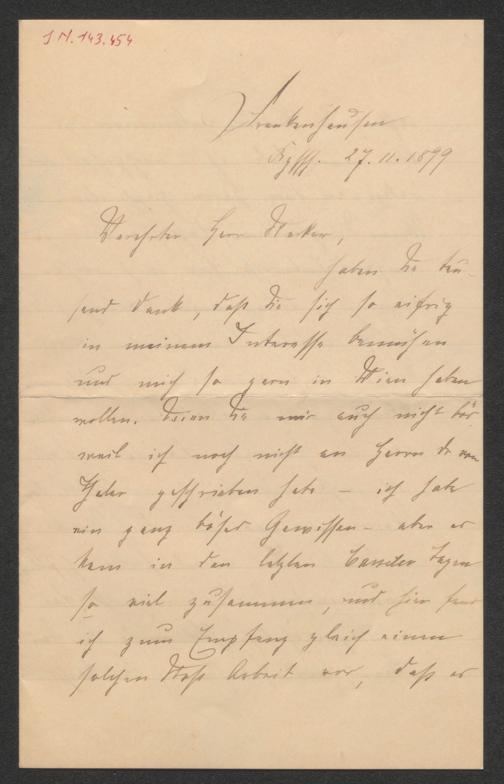 J.N. 143.454
Frankenhausen
Kyffh. 27.11.1899
Verehrter Herr
haben Sie tau-
send Dank, daß Sie sich so eifrig
in meinem Interesse bemühen
und mich so gern in Wien haben
wollen. Seien Sie mir auch nicht bös,
weil ich noch nicht an Herrn Dr von
geschrieben habe – ich habe
ein ganz böses Gewissen – aber es
kam in den letzten Tagen
so viel zusammen, und hier fand
ich zum Empfang gleich einen
solchen Stoß Arbeit vor, daß es